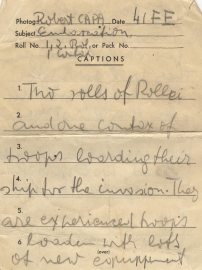 Photog Robert CAPA Date 4/FE
Subject Embarkation
Roll No. 1,2, Rol. or Pack No.
1 Contax
CAPTIONS
1. Two rolls of Rollei
2. and one contax of
3. troops loading their
4. ship for the invasion. They
5. are experienced troops
6. loaden with lots
(over)
of new equipment